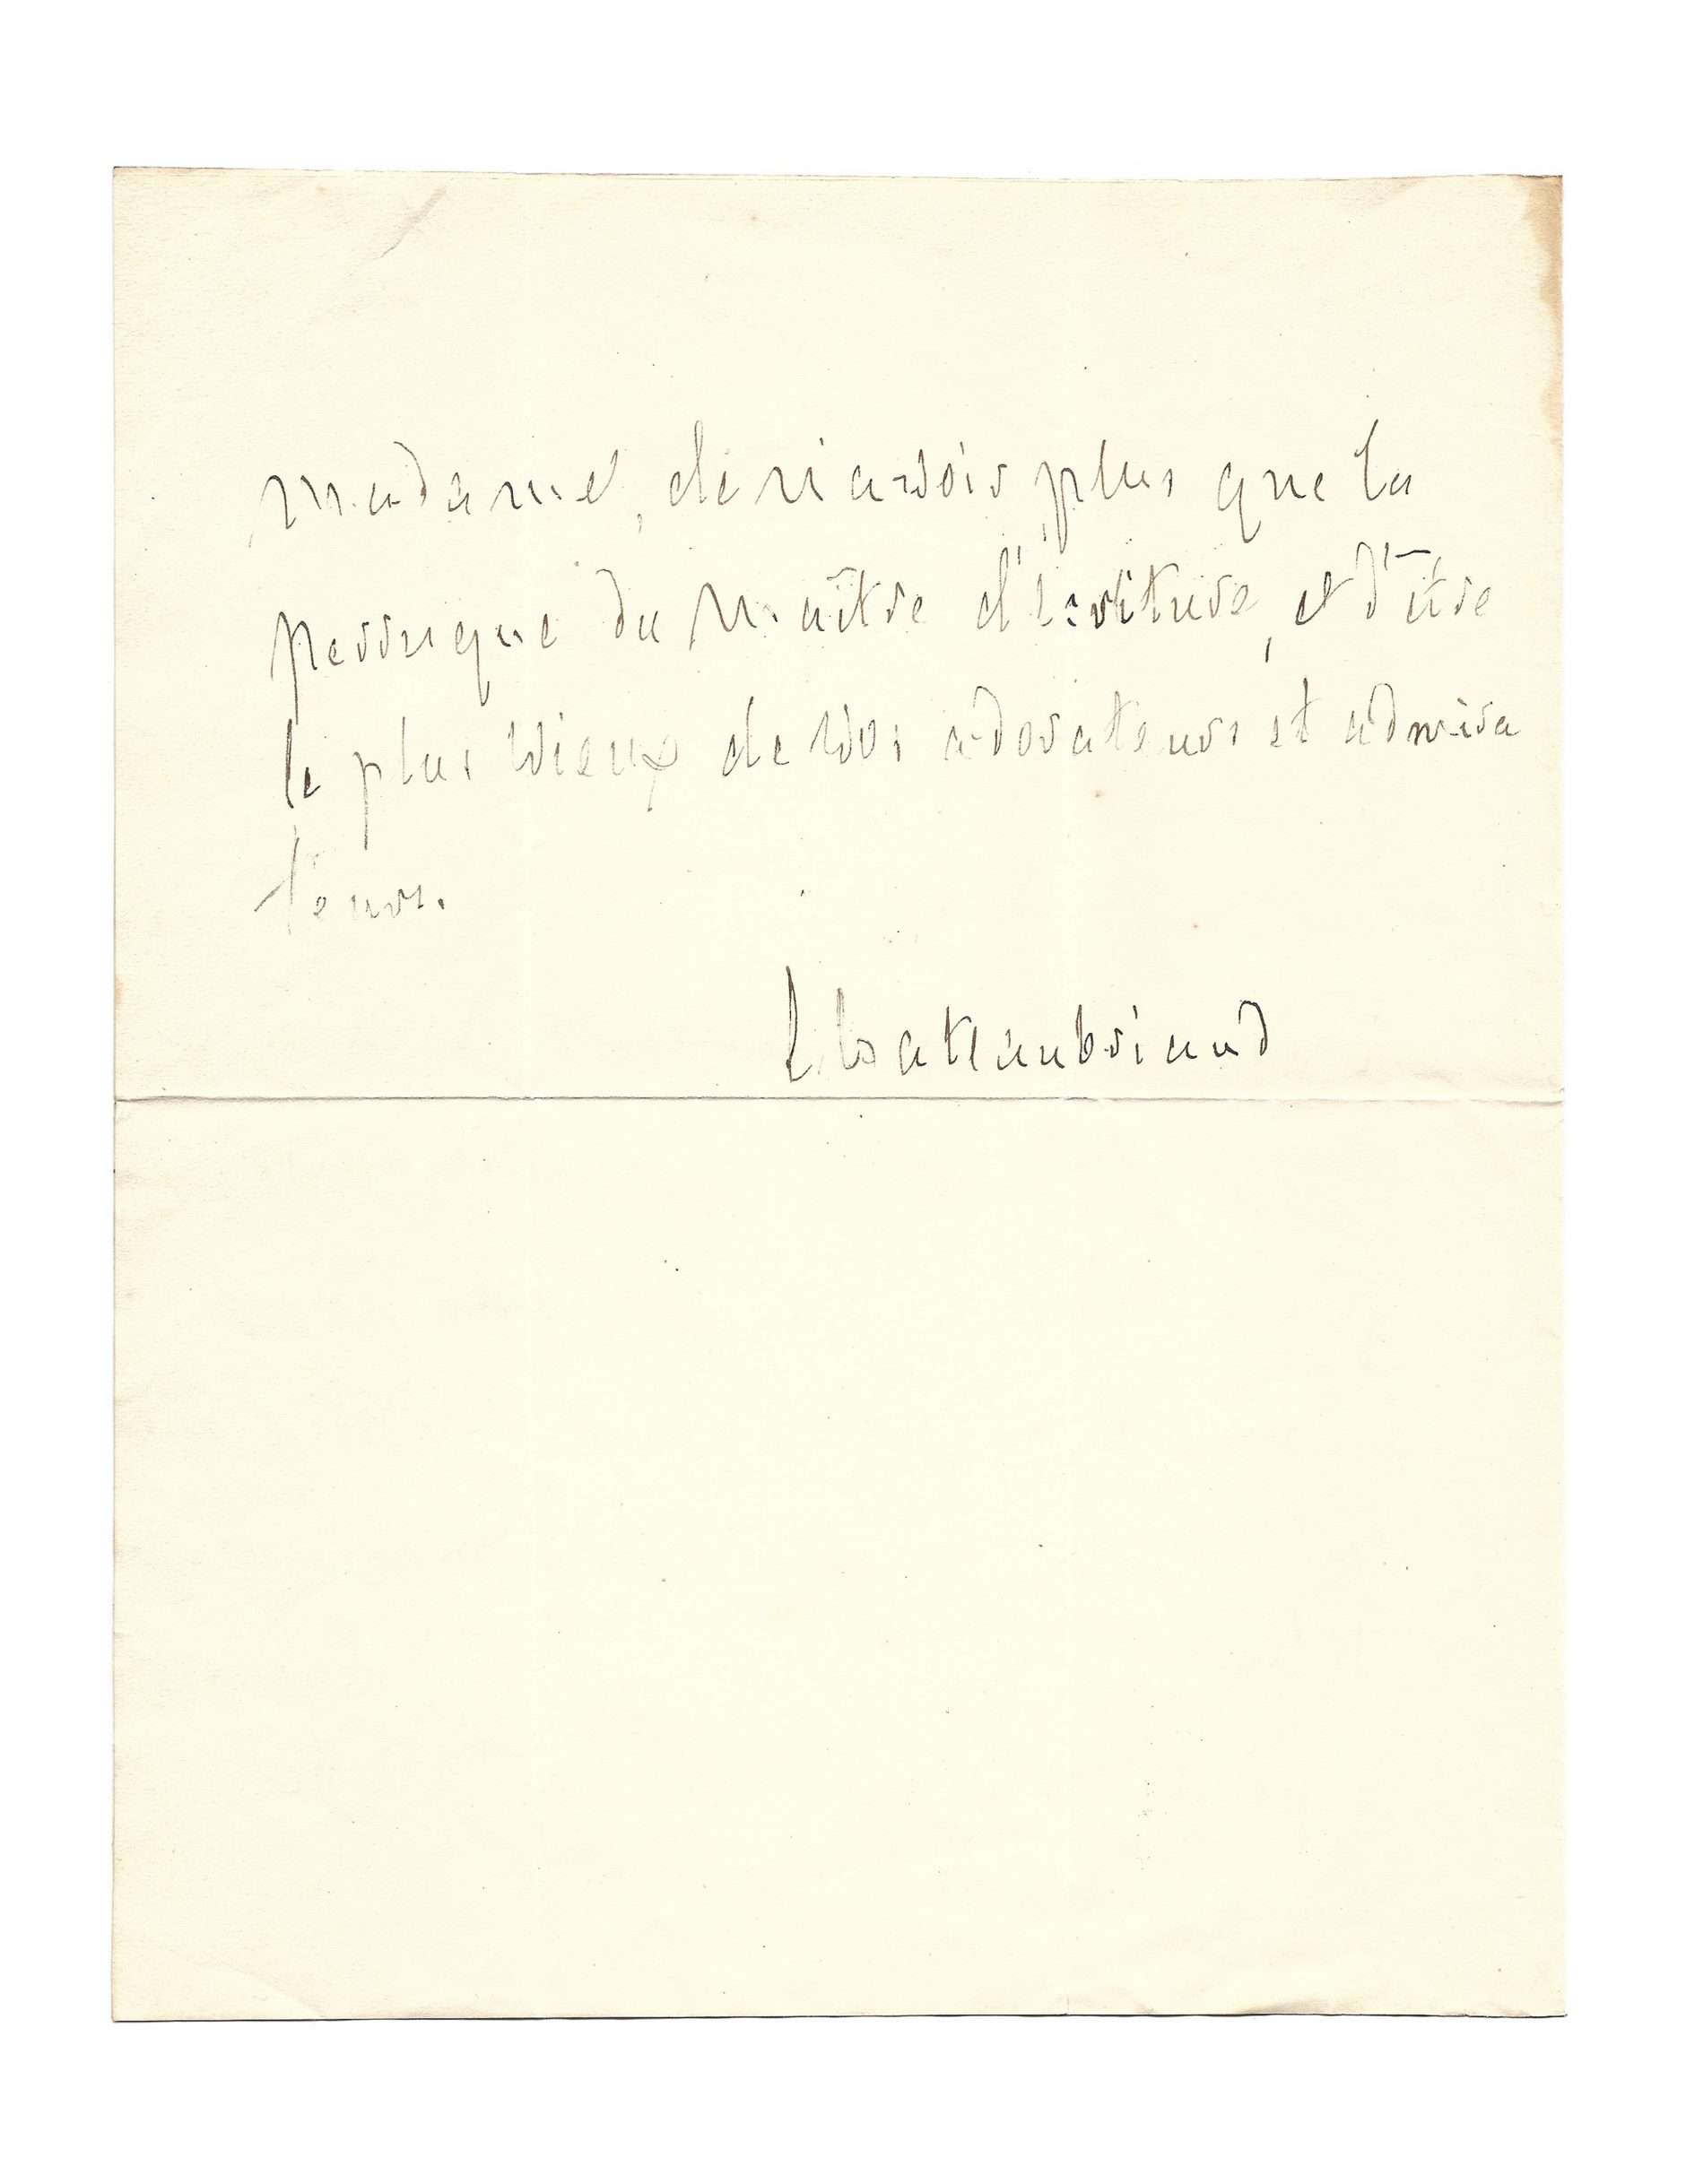 Madame, de n'avoir plus que la
perruque du maître d'écriture, et d'être
le plus vieux de vos adorateurs et admira
teurs.
Chateaubriand